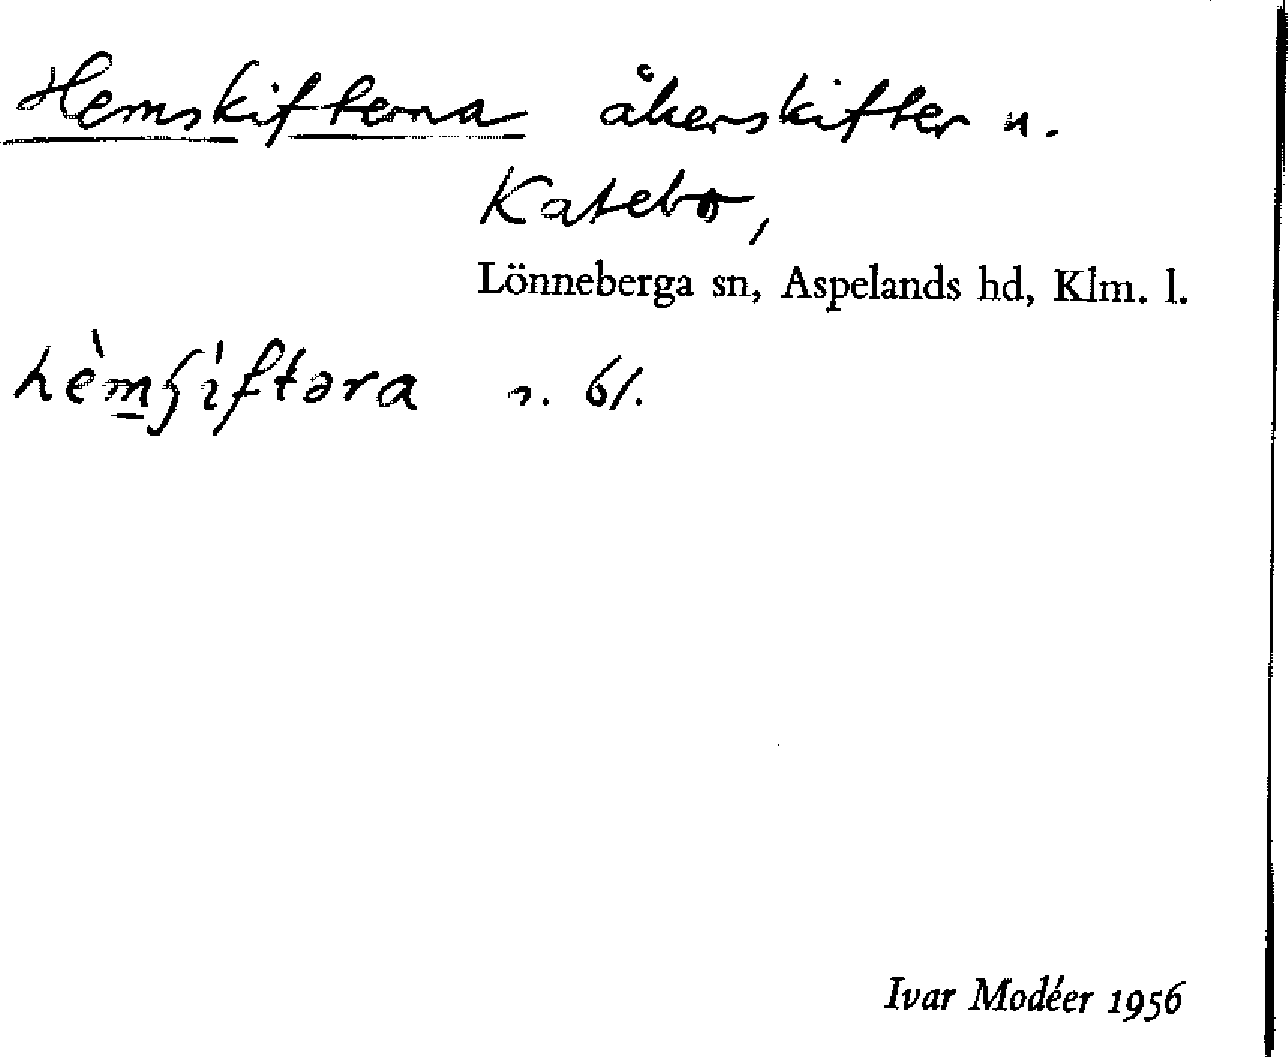 Hemskifterna åkerskifter n.
Katebo,
Lönneberga sn, Aspelands hd, Klm. l.
s. 61.
Ivar Modéer 1956